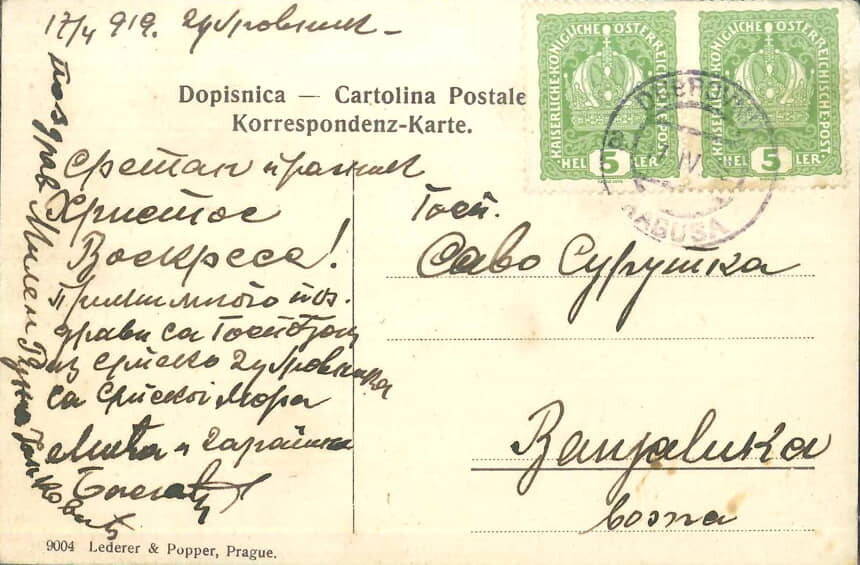 17/4 919. Дубровник –
Dopisnica — Cartolina Postale
Korrespondenz-Karte.
KAISERLICHE KÖNIGLICHE ÖSTERREICHISCHE POST
HELLER 5
KAISERLICHE KÖNIGLICHE ÖSTERREICHISCHE POST
HELLER 5
DUBROVNIK
RAGUSA
Сретан празник
Христос
Воскресе!
Прими много поз.
драви са Госпођом
из српско Дубровника
са српског мора
Мића и
Госп.
Саво Сурутка
Banjaluka
bosna
поздрав Милен
9004 Lederer & Popper, Prague.